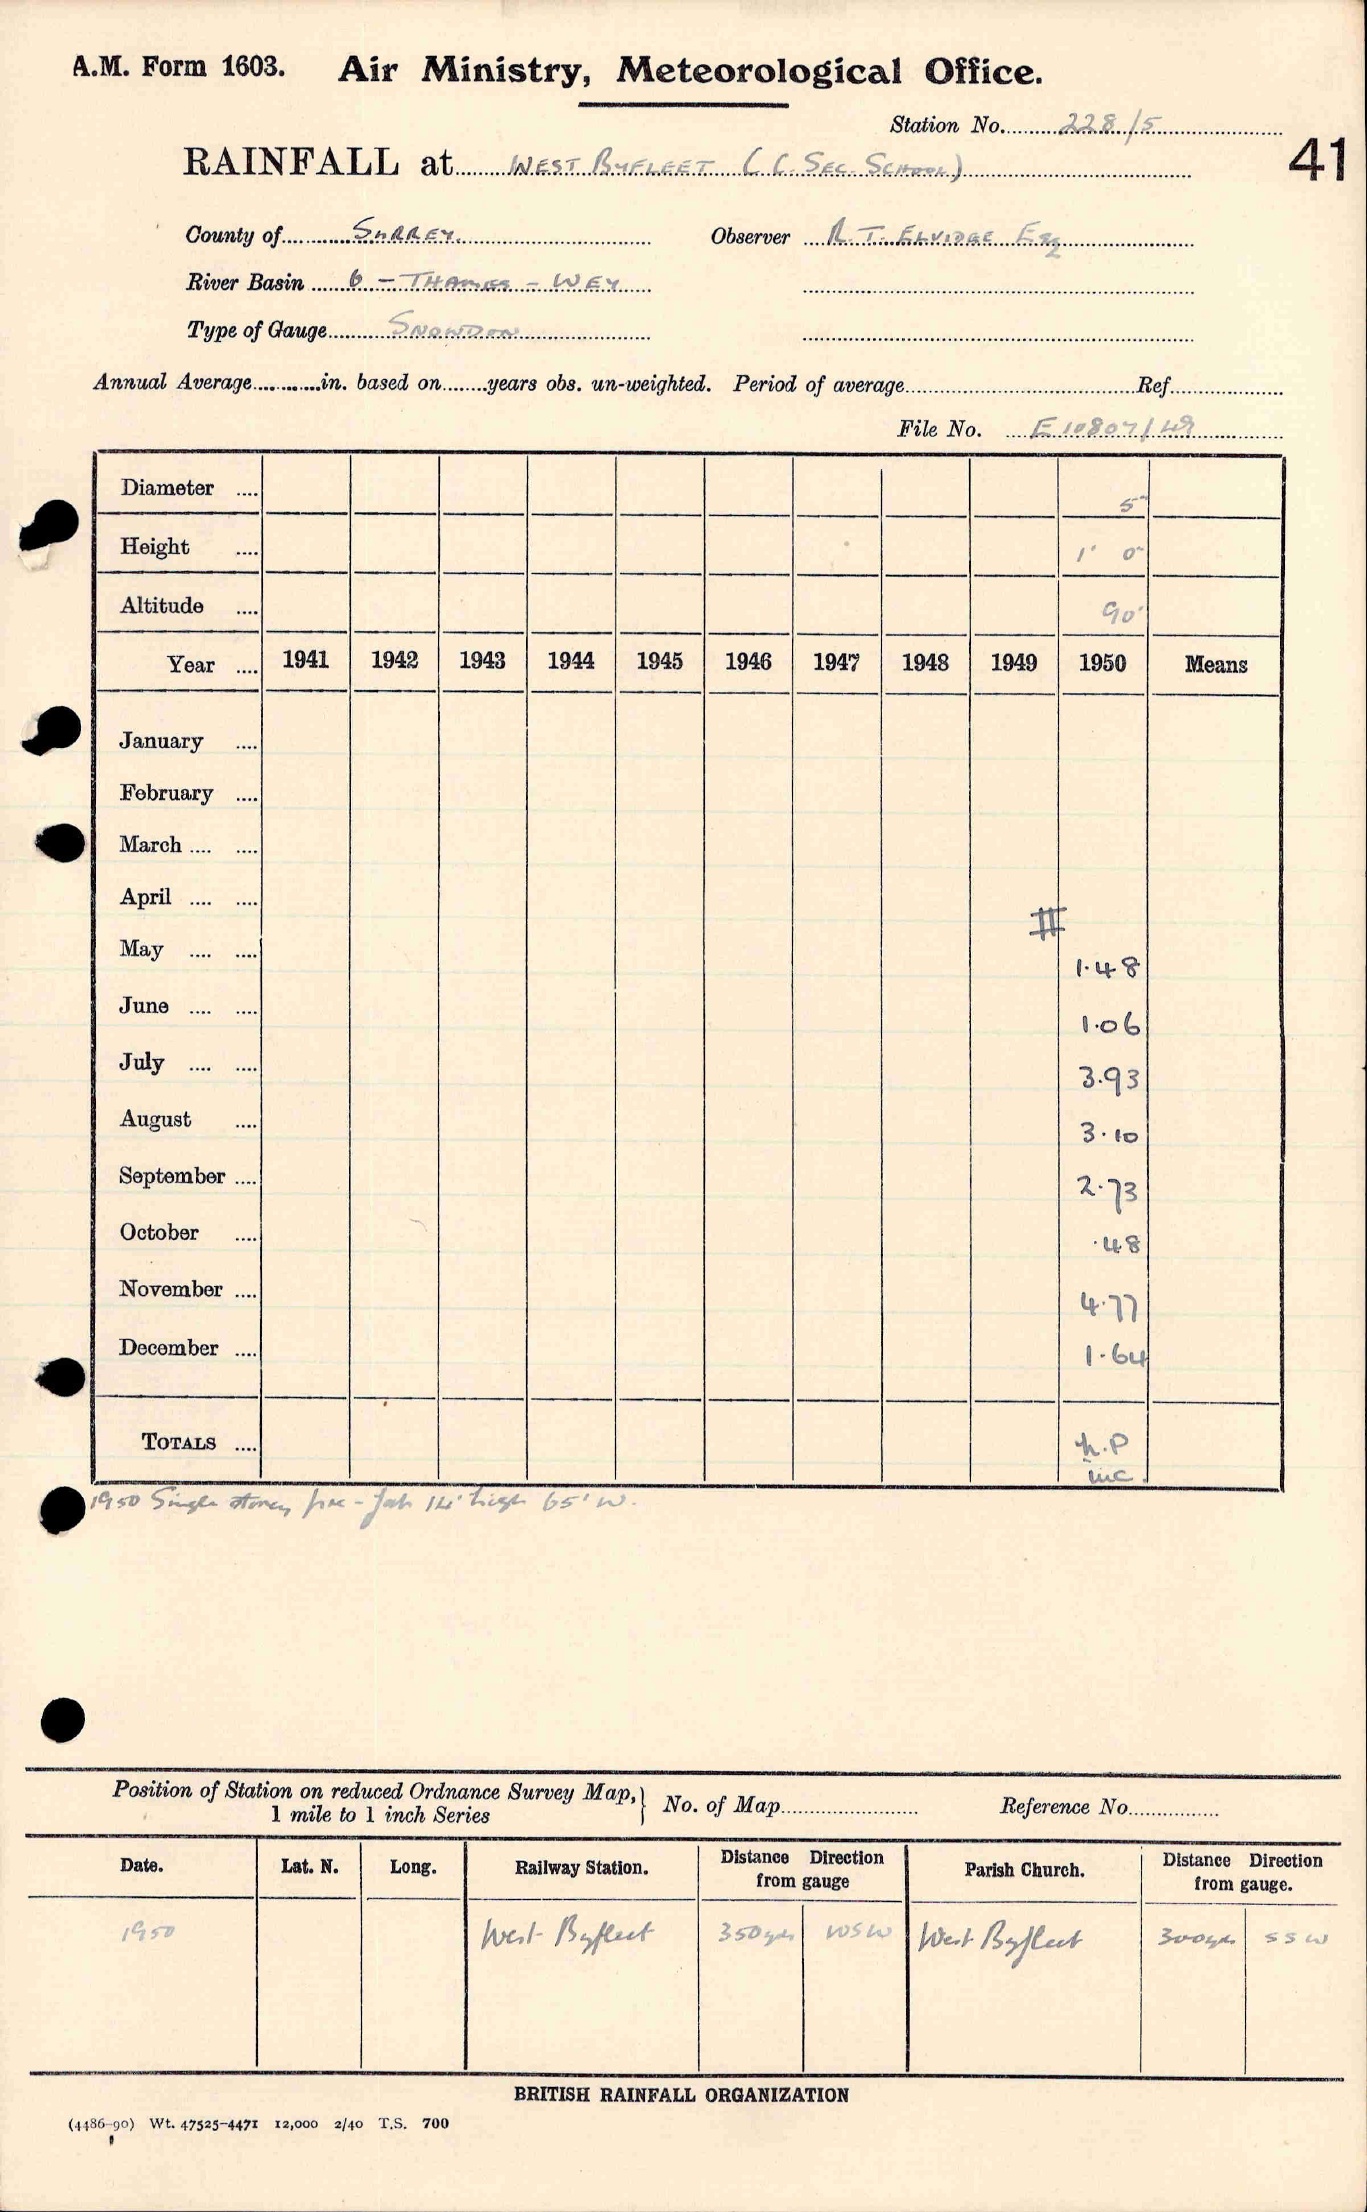 A.M. Form 1603. Air Ministry, Meteorological Office.
Station No. 228/5
41
RAINFALL at WEST BYFLEET (C. SEC. SCHOOL)
County of SURREY. Observer R. T. ELVIDGE ESQ
River Basin 6 - THAMES - WEY
Type of Gauge SNOWDON
Annual Average in. based on years obs. un-weighted. Period of average Ref.
File No. E 10807/49
Diameter .... 5"
Height .... 1' 0"
Altitude .... 90'
Year .... 1941 1942 1943 1944 1945 1946 1947 1948 1949 1950 Means
January ....
February ....
March .... ....
April .... ....
May .... .... 1.48
June .... .... 1.06
July .... .... 3.93
August .... 3.10
September .... 2.73
October .... .48
November .... 4.77
December .... 1.64
TOTALS .... n.P
inc.
1950 Single storey pre-fab 14' high 65' W.
Position of Station on reduced Ordnance Survey Map,
1 mile to 1 inch Series
No. of Map Reference No.
Date. Lat. N. Long. Railway Station. Distance Direction from gauge Parish Church. Distance Direction from gauge.
1950 West Byfleet 350yds WSW West Byfleet 300yds SSW
BRITISH RAINFALL ORGANIZATION
(4486-90) Wt. 47525-4471 12,000 2/40 T.S. 700